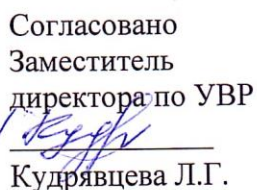 Согласовано
Заместитель
директора по УВР
Кудрявцева Л.Г.